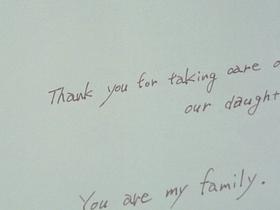 Thank you for taking care o
our daught
You are my family.